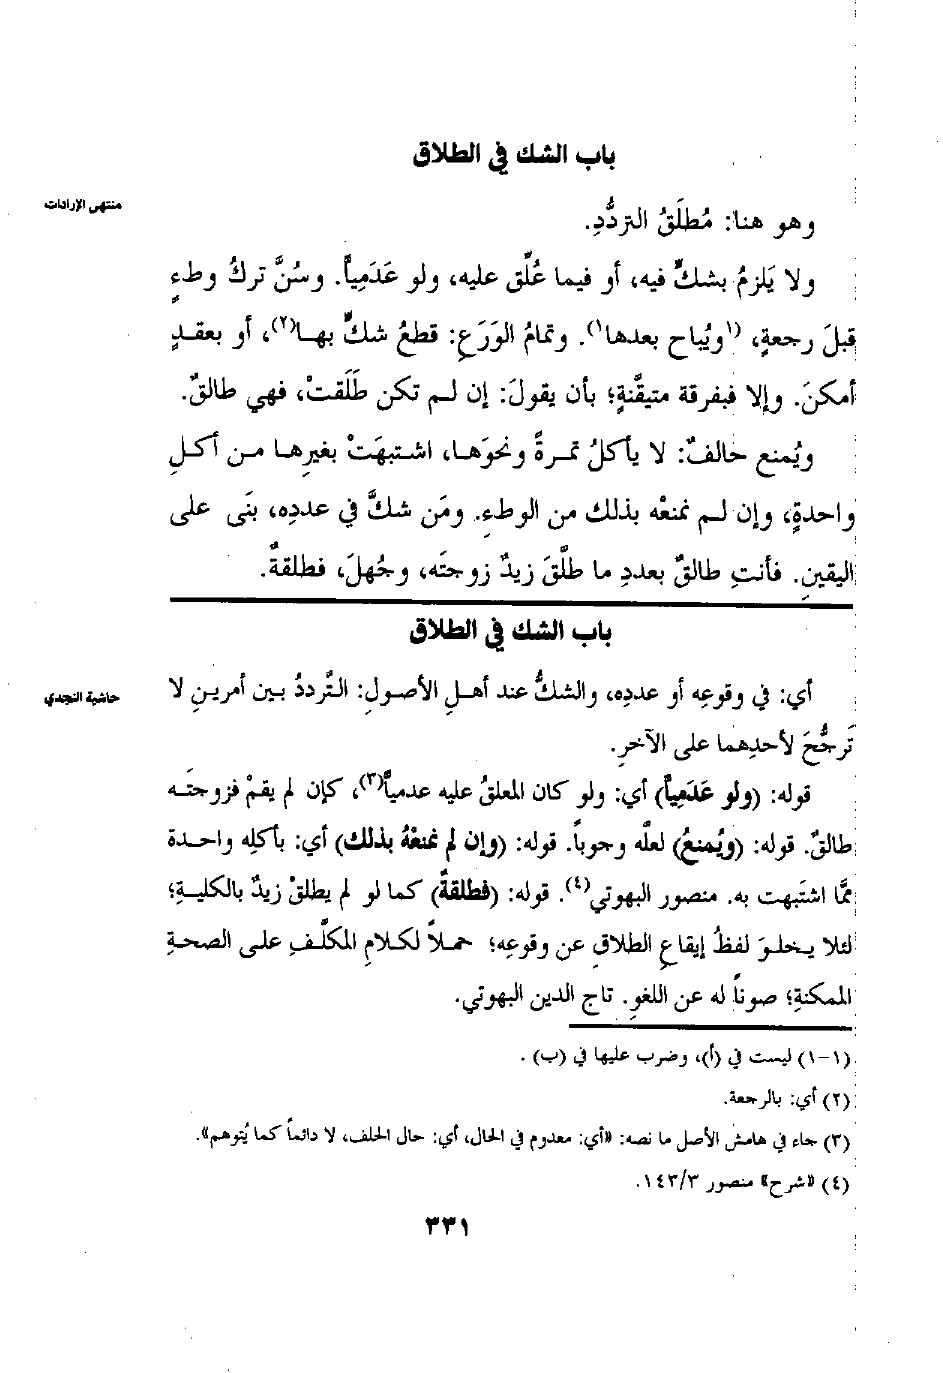 باب الشك في الطلاق
منتهى الإرادات
وهو هنا: مُطلَقُ التردُّدِ.
ولا يَلزمُ بشكٍّ فيه، أو فيما عُلِّق عليه، ولو عَدَمِياً. وسُنَّ تركُ وطءٍ
قبلَ رجعةٍ، (١ويُباح بعدها١). وتمامُ الوَرَعِ: قطعُ شكٍّ بها(٢)، أو بعقدٍ
أمكنَ. وإلا فبفرقة متيقَّنةٍ؛ بأن يقولَ: إن لم تكن طَلَقتْ، فهي طالقٌ.
ويُمنع حالفٌ: لا يأكلُ تمرةً ونحوَها، اشتبهَتْ بغيرِها من أكلِ
واحدةٍ، وإن لم نمنعْه بذلك من الوطءِ. ومَن شكَّ في عددِه، بنَى على
اليقينِ. فأنتِ طالقٌ بعددِ ما طلَّقَ زيدٌ زوجتَه، وجُهلَ، فطلقةٌ.
باب الشك في الطلاق
حاشية النجدي
أي: في وقوعِه أو عددِه، والشكُّ عند أهلِ الأصولِ: التَّرددُ بين أمرينِ لا
تَرجُّحَ لأحدِهما على الآخرِ.
قوله: (ولو عَدَمِياً) أي: ولو كان المعلقُ عليه عدمياً(٣)، كإن لم يقمْ فزوجتَه
طالقٌ. قوله: (ويُمنعُ) لعلَّه وجوباً. قوله: (وإن لم نمنعْهُ بذلك) أي: بأكلِه واحدة
ممَّا اشتَبهت به. منصور البهوتي(٤). قوله: (فطلقةٌ) كما لو لم يطلقْ زيدٌ بالكليةِ؛
لئلا يخلوَ لفظُ إيقاعِ الطلاقِ عن وقوعِه؛ حملاً لكلامِ المكلَّفِ على الصحةِ
الممكنةِ؛ صوناً له عن اللغوِ. تاج الدين البهوتي.
(١-١) ليست في (أ)، وضرب عليها في (ب) .
(٢) أي: بالرجعة.
(٣) جاء في هامش الأصل ما نصه: «أي: معدوم في الحال، أي: حال الحلف، لا دائماً كما يُتوهم».
(٤) «شرح» منصور ١٤٣/٣.
٣٣١